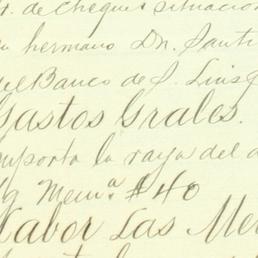 de cheques situacion
hermano Dn. Santi
del Banco de S. Luis
Gastos Grales.
importa la raya del d
Mema. $40
Labor Las Me